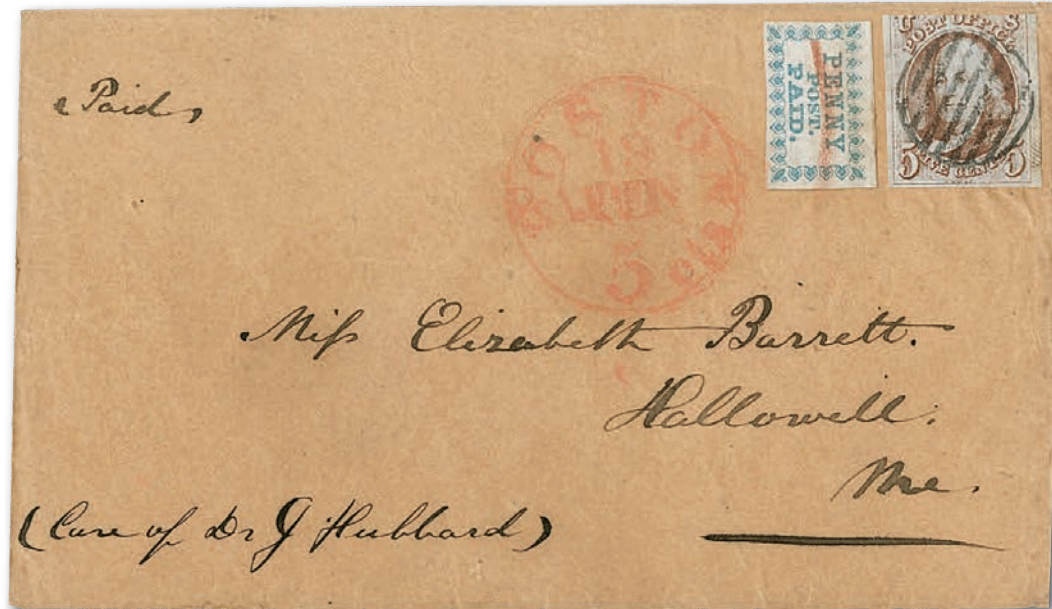 Paid
PENNY
POST.
PAID.
U S
POST OFFICE
5 FIVE CENTS
BOSTON
18
5 cts
Miss Elizabeth Barrett.
Hallowell.
Me.
(Care of Dr J Hubbard)